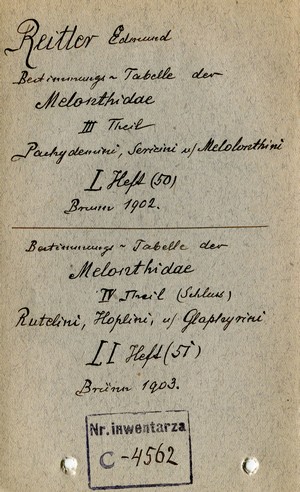 Reitter Edmund
Bestimmungs-Tabelle der
Melonthidae
III Theil
Pachydemini, Sericini u/ Melolonthini
L Heft (50)
Brünn 1902.
Bestimmungs-Tabelle der
Melonthidae
IV Theil (Schluss)
Rutelini, Hoplini, u/ Glaphyrini
LI Heft (51)
Brünn 1903.
Nr. inwentarza
C-4562